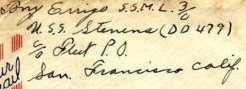 Tony Errigo S.S.M.L. 3/c
U.S.S. Stevens (DD 479)
c/o Fleet P.O.
San Francisco Calif.
air
mail